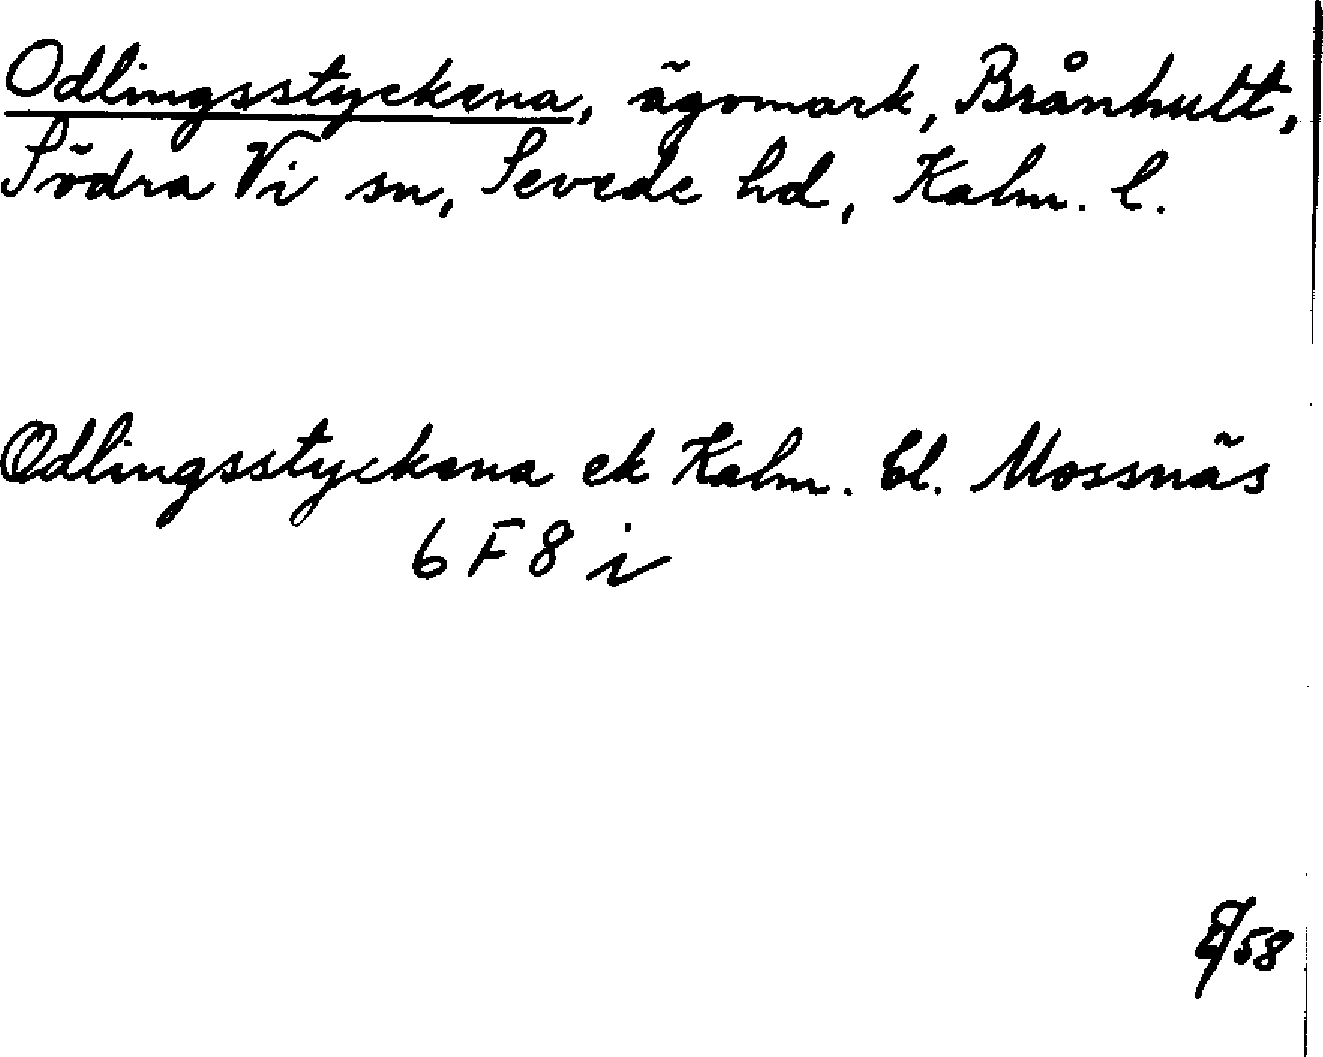 Odlingsstyckena, ägomark, Brånhult,
Södra Vi sn, Sevede hd, Kalm. l.
Odlingsstyckena ek Kalm. bl. Mossnäs
6 F 8 i
58